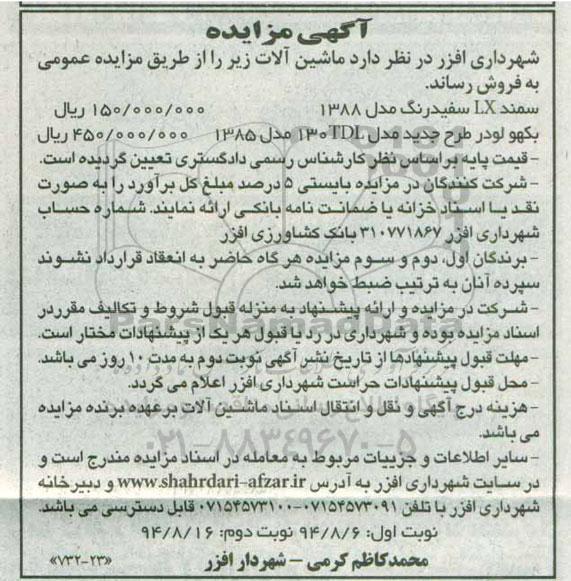 آگهی مزایده
شهرداری افزر در نظر دارد ماشین آلات زیر را از طریق مزایده عمومی
به فروش رساند.
سمند LX سفیدرنگ مدل ۱۳۸۸ ۱۵۰/۰۰۰/۰۰۰ ریال
بکهو لودر طرح جدید مدل ۱۳۰TDL مدل ۱۳۸۵ ۴۵۰/۰۰۰/۰۰۰ ریال
- قیمت پایه براساس نظر کارشناس رسمی دادگستری تعیین گردیده است.
- شرکت کنندگان در مزایده بایستی ۵ درصد مبلغ کل برآورد را به صورت
نقد یا اسناد خزانه یا ضمانت نامه بانکی ارائه نمایند. شماره حساب
شهرداری افزر ۳۱۰۷۷۱۸۶۷ بانک کشاورزی افزر
- برندگان اول، دوم و سوم مزایده هر گاه حاضر به انعقاد قرارداد نشوند
سپرده آنان به ترتیب ضبط خواهد شد.
- شرکت در مزایده و ارائه پیشنهاد به منزله قبول شروط و تکالیف مقرر در
اسناد مزایده بوده و شهرداری در رد یا قبول هر یک از پیشنهادات مختار است.
- مهلت قبول پیشنهادها از تاریخ نشر آگهی نوبت دوم به مدت ۱۰ روز می باشد.
- محل قبول پیشنهادات حراست شهرداری افزر اعلام می گردد.
- هزینه درج آگهی و نقل و انتقال اسناد ماشین آلات بر عهده برنده مزایده
می باشد.
- سایر اطلاعات و جزییات مربوط به معامله در اسناد مزایده مندرج است و
در سایت شهرداری افزر به آدرس www.shahrdari-afzar.ir و دبیرخانه
شهرداری افزر با تلفن ۰۷۱۵۴۵۷۳۰۹۱-۰۷۱۵۴۵۷۳۱۰۰ قابل دسترسی می باشد.
نوبت اول: ۹۴/۸/۶ نوبت دوم: ۹۴/۸/۱۶
محمدکاظم کرمی – شهردار افزر
«۷۳۲-۲۳»
ParsNamadData
۰۲۱-۸۸۳۴۹۶۷۰-۵